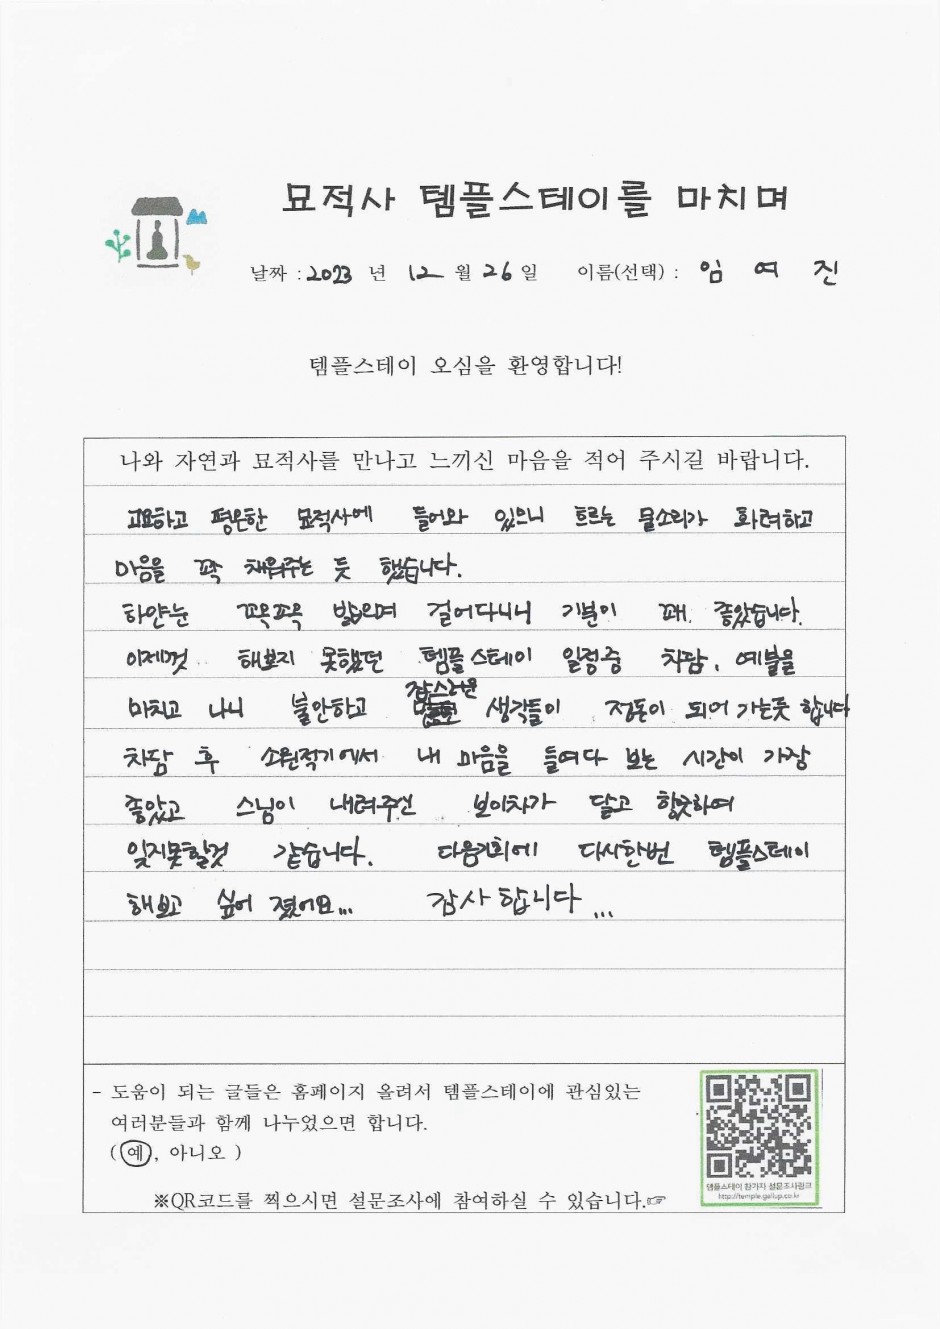 묘적사 템플스테이를 마치며
날짜 : 2023 년 12 월 26 일 이름(선택) : 임 여 진
템플스테이 오심을 환영합니다!
나와 자연과 묘적사를 만나고 느끼신 마음을 적어 주시길 바랍니다.
고요하고 평온한 묘적사에 들어와 있으니 흐르는 물소리가 화려하고
마음을 꽉 채워주는 듯 했습니다.
하얀눈 꼬옥꼬옥 밟으며 걸어다니니 기분이 꽤 좋았습니다.
이제껏 해보지 못했던 템플스테이 일정중 차담, 예불을
마치고 나니 불안하고 잡스러운 생각들이 정돈이 되어 가는듯 합니다
차담 후 소원적기에서 내 마음을 들여다 보는 시간이 가장
좋았고 스님이 내려주신 보이차가 달고 향긋하여
잊지못할것 같습니다. 다음기회에 다시한번 템플스테이
해보고 싶어 졌어요... 감사합니다...
- 도움이 되는 글들은 홈페이지 올려서 템플스테이에 관심있는
여러분들과 함께 나누었으면 합니다.
( 예, 아니오 )
템플스테이 참가자 설문조사링크
http://temple.gallup.co.kr
※QR코드를 찍으시면 설문조사에 참여하실 수 있습니다.☞